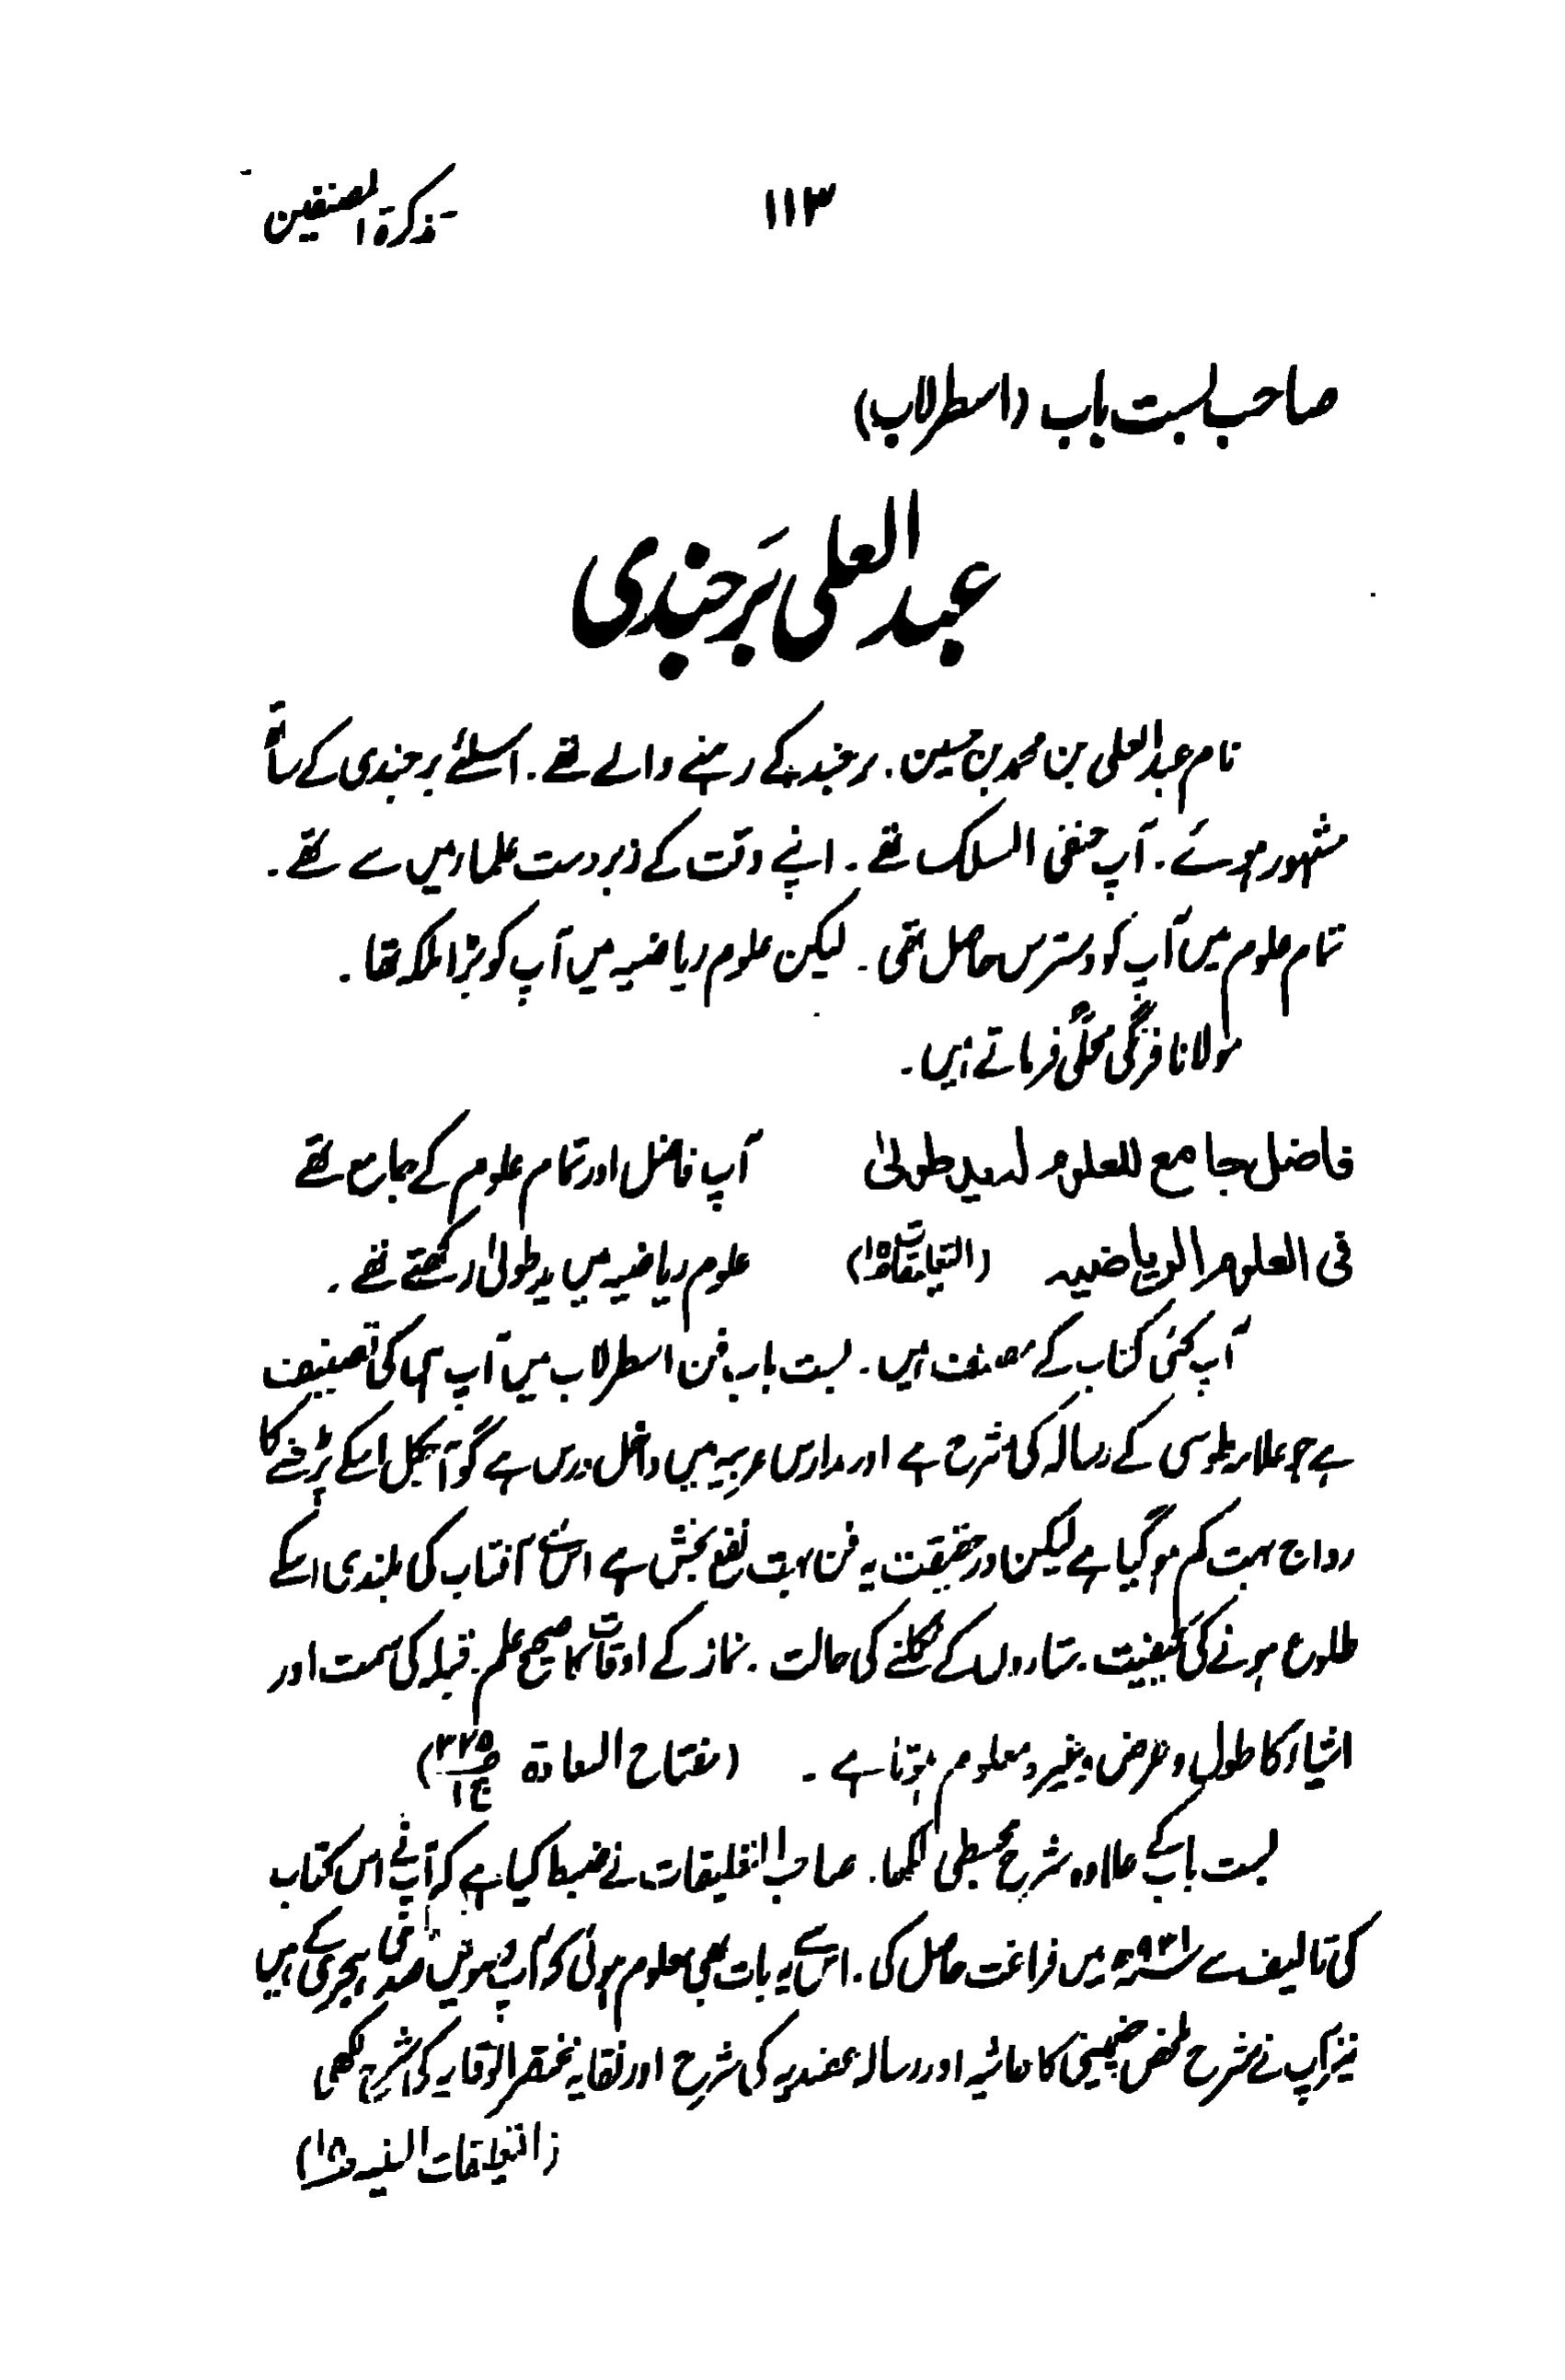 تذکرۃ المصنفین ۱۱۳
صاحب بست باب (اسطرلاب)
عبدالعلی بَرجندی
نام عبدالعلی بن محمد بن حسین. برجند کے رہنے والے تھے. اسلئے برجندی کے ساتھ
مشہور ہوئے. آپ حنفی المسلک تھے. اپنے وقت کے زبردست علماء میں سے تھے.
تمام علوم میں آپ کو دسترس حاصل تھی. لیکن علوم ریاضیہ میں آپ کو بڑا ملکہ تھا.
مولانا فرنگی محلیؒ فرماتے ہیں.
فاضل جامع للعلوم لہ ید طولیٰ آپ فاضل اور تمام علوم کے جامع تھے
فی العلوم الریاضیہ (التعلیقات ص۱۵) علوم ریاضیہ میں ید طولیٰ رکھتے تھے.
آپ کئی کتاب کے مصنف ہیں. بست باب فن اسطرلاب میں آپ ہی کی تصنیف
ہے جو علامہ طوسی کے رسالہ کی شرح ہے اور مدارس عربیہ میں داخل درس ہے گو آجکل اسکے پڑھنے کا
رواج بہت کم ہوگیا ہے لیکن درحقیقت یہ فن بہت نفع بخش ہے اس سے آفتاب کی بلندی اسکے
طلوع ہونے کی کیفیت. ستاروں کے نکلنے کی حالت. نماز کے اوقات کا صحیح علم. قبلہ کی سمت اور
اشیاء کا طول و عرض وغیرہ معلوم ہوتا ہے. (مفتاح السعادۃ ص۳۲۵ ج۱)
بست باب کے علاوہ شرح مجسطی لکھا. صاحب التعلیقات نے ضبط کیا ہے کہ آپ نے اس کتاب
کی تالیف سے ۹۲۱ھ میں فراغت حاصل کی. اس سے یہ بات بھی معلوم ہوئی کہ آپ دسویں صدی ہجری کے ہیں
نیز آپ نے شرح ملخص چغمینی کا حاشیہ اور رسالہ عضدیہ کی شرح اور نقایہ مختصر الوقایہ کی شرح لکھی
(التعلیقات السنیہ ص۱۵)